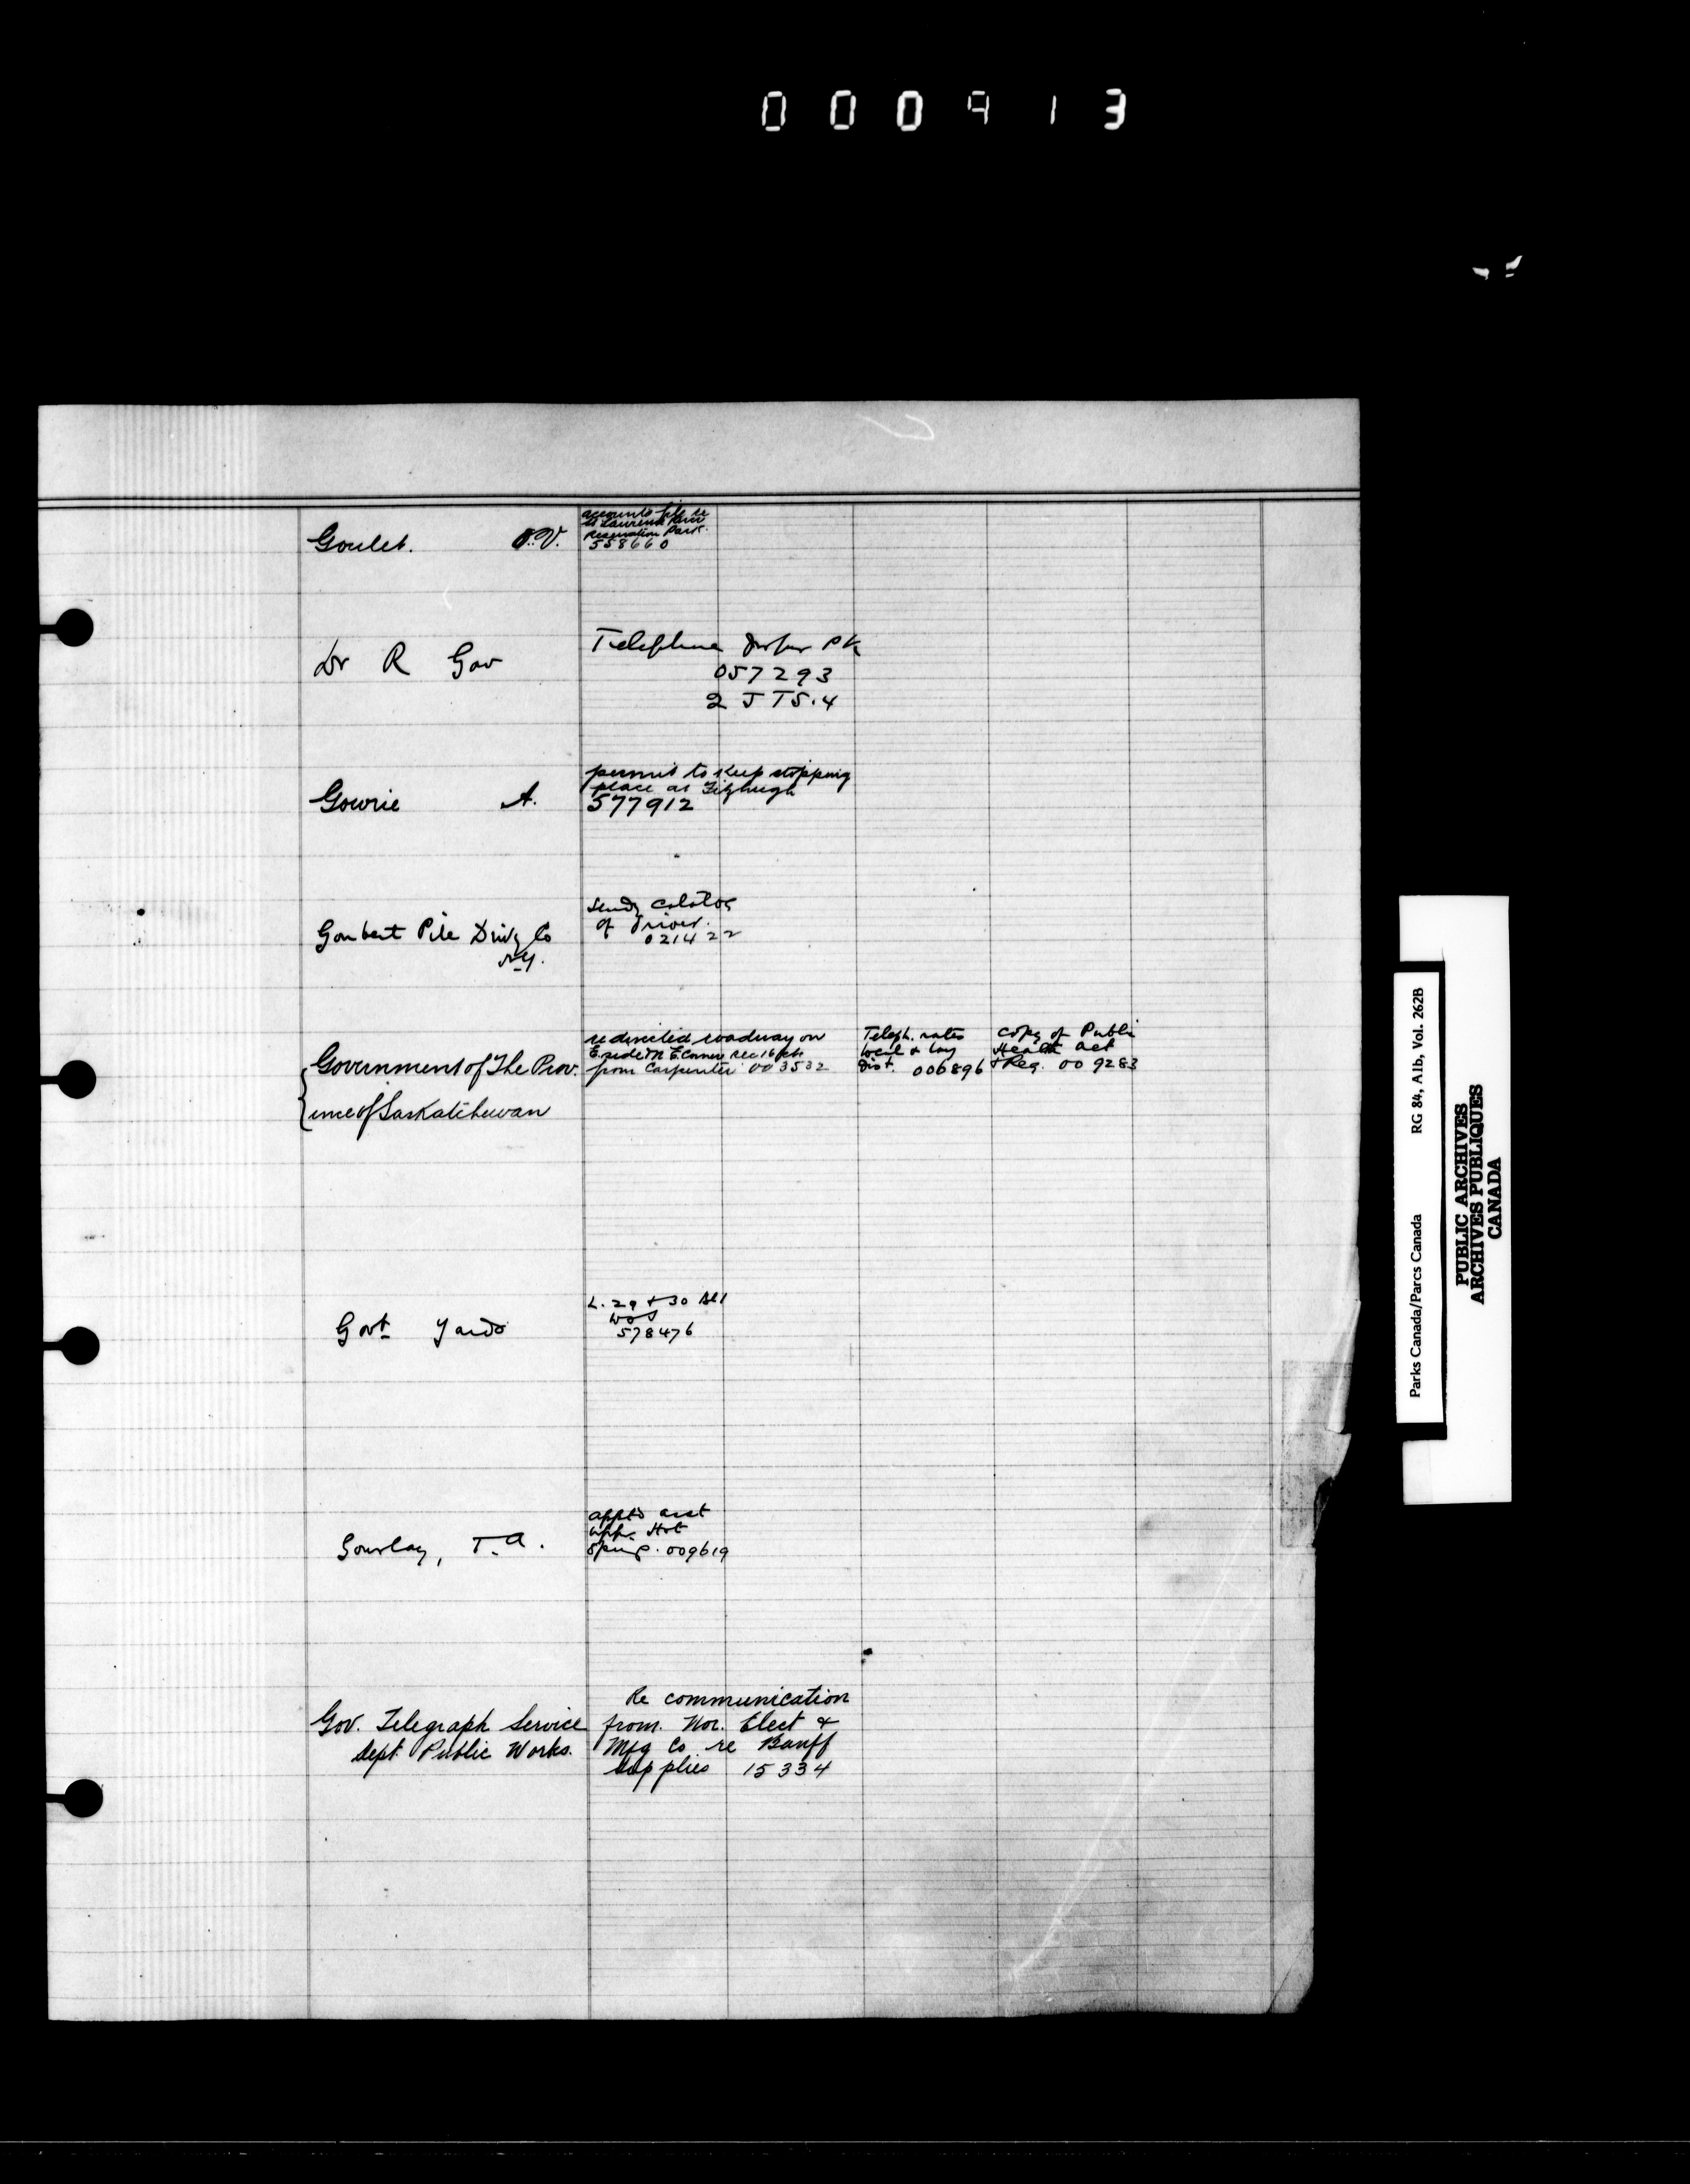 000913
Goulet. O.V.
accounts file re
St Laurence River
Reservation Park.
558660
Dr R Gov
Telephone Jasper Pk
057293
2 J T S. 4
Gowrie A.
permit to keep stopping
place at Fitzhugh
577912
Goubert Pile Drivg Co
N.Y.
sendg catalog
of driver.
021422
Government of The Prov.
ince of Saskatchewan
re directed roadway on
E. side N E. Corner Sec 16
from Carpenter 003532
Teleph. rates
local & long
dist. 006896
copy of Public
Health act
& Reg. 009283
Govt Yards
L. 29 & 30 Bl 1
578476
Gourlay, T. A.
appt'd asst
upper Hot
Springs. 009619
Gov. Telegraph Service
Dept. Public Works.
Re communication
from. Nor. Elect &
Mfg Co re Banff
supplies 15334
Parks Canada/Parcs Canada RG 84, Alb, Vol. 262B
PUBLIC ARCHIVES
ARCHIVES PUBLIQUES
CANADA